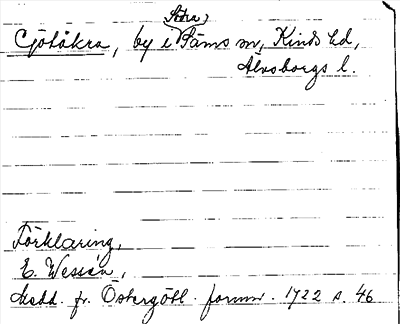 Södra
Götåkra, by i Säms sn, Kinds hd,
Älvsborgs l.
Förklaring,
E. Wessén,
Medd. fr. Östergötl. fornm. 1922 s. 46